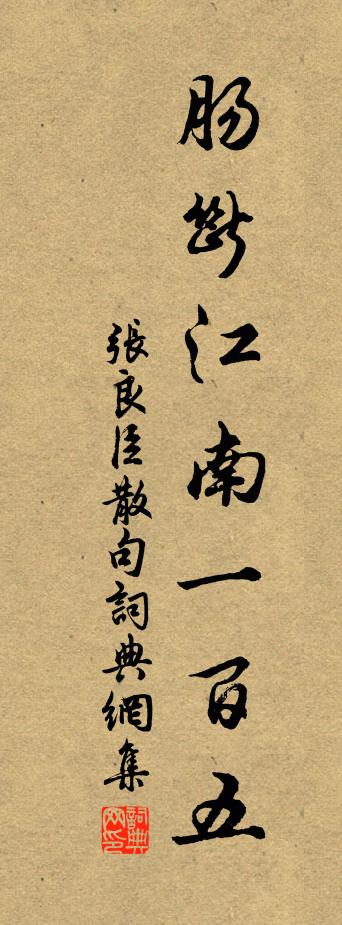 肠斷江南一百五
張良臣散句詞典網集
詞典网印